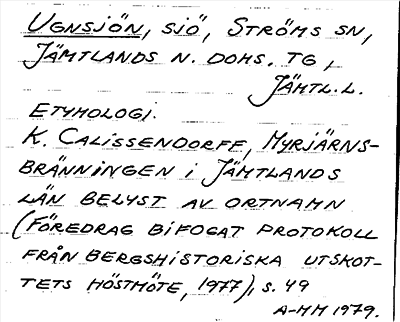 UGNSJÖN, SJÖ, STRÖMS SN,
JÄMTLANDS N. DOMS. TG,
JÄMTL. L.
ETYMOLOGI.
K. CALISSENDORFF, MYRJÄRNS-
BRÄNNINGEN I JÄMTLANDS
LÄN BELYST AV ORTNAMN
(FÖREDRAG BIFOGAT PROTOKOLL
FRÅN BERGSHISTORISKA UTSKOT-
TETS HÖSTMÖTE, 1977), S. 49
A-MM 1979.